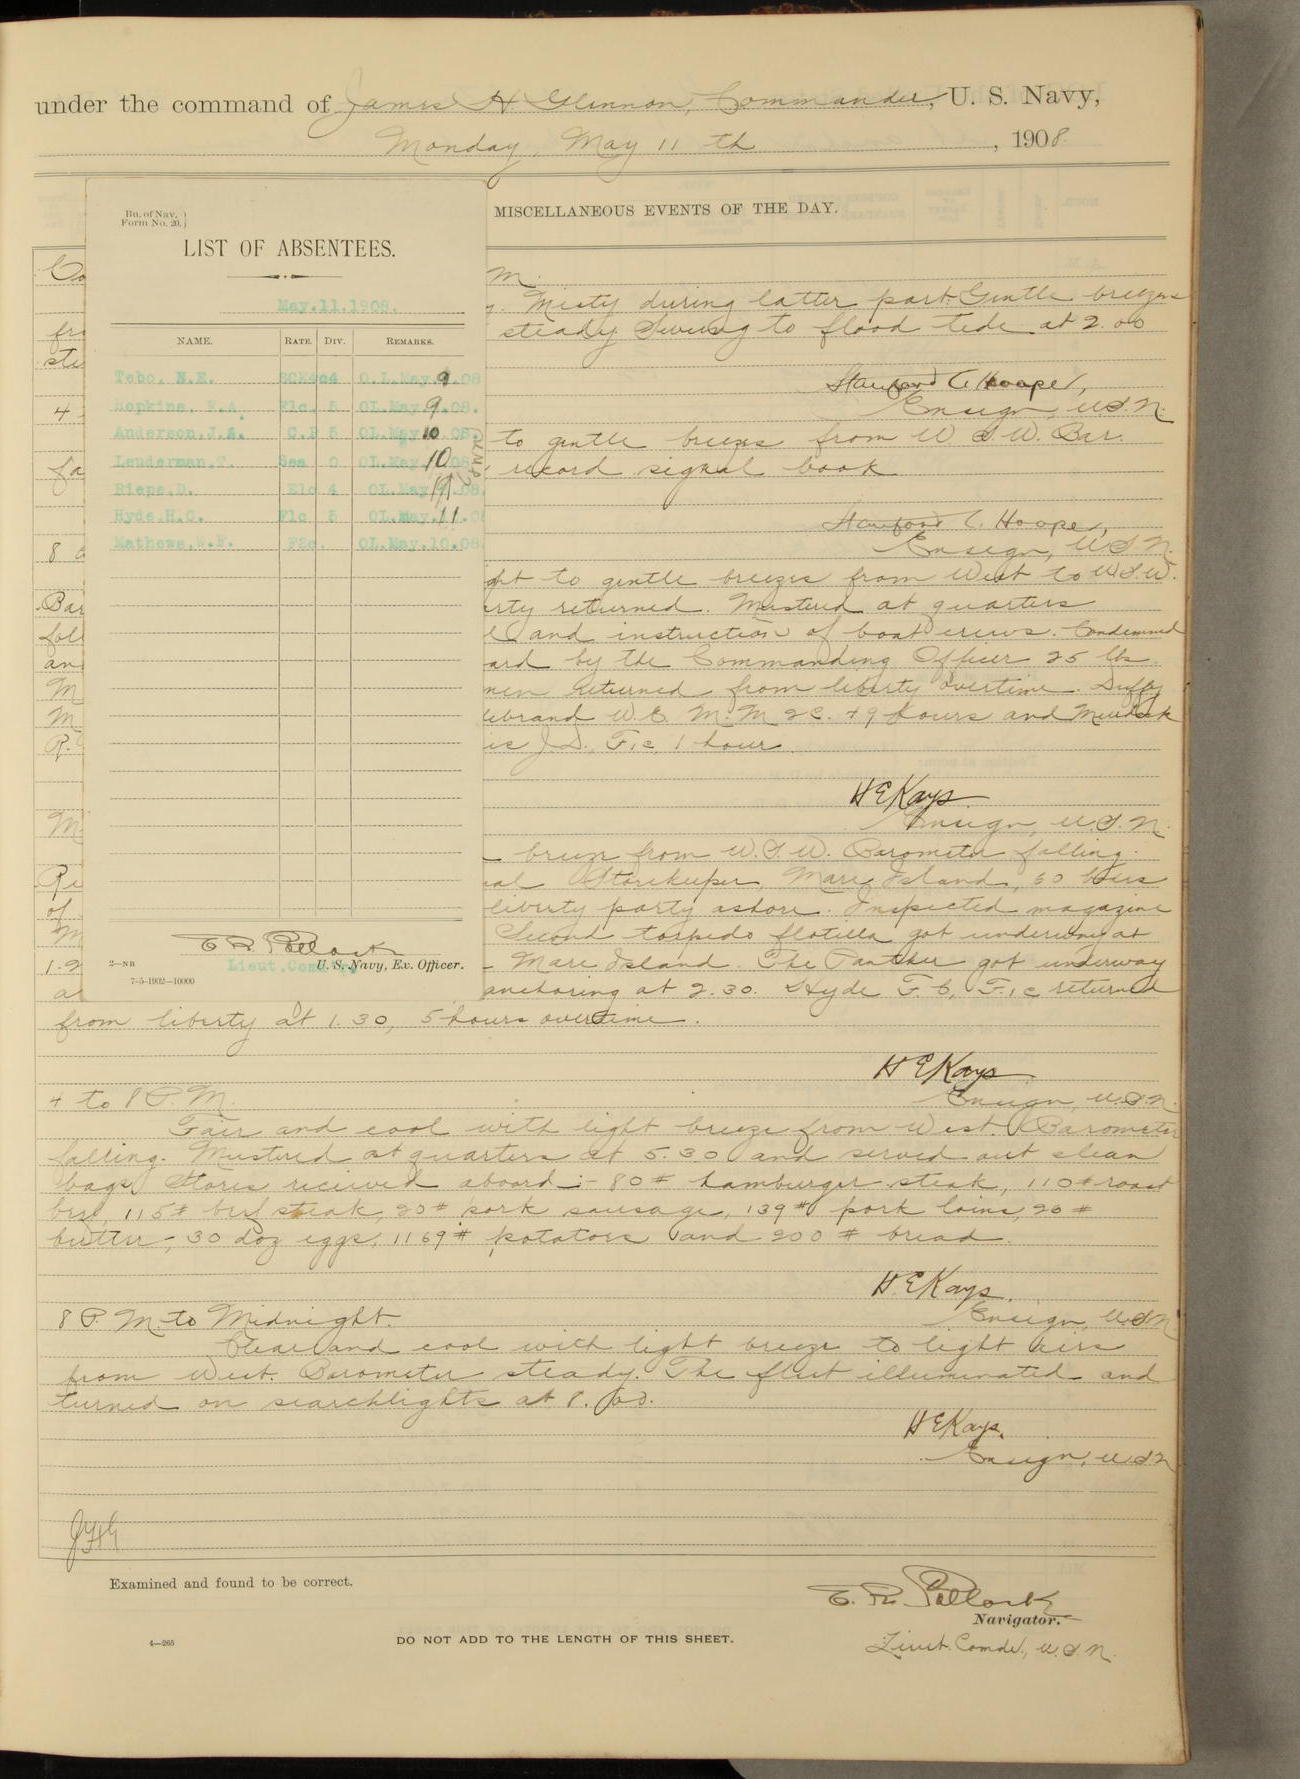 under the command of James H Glennon, Commander, U. S. Navy,
Monday, May 11 th, 1908.
MISCELLANEOUS EVENTS OF THE DAY.
Bu. of Nav.
Form No. 20.
LIST OF ABSENTEES.
May.11.1908.
NAME. RATE. DIV. REMARKS.
Tebo, N.E. 4 O.L.May.9.08
Hopkins, F.A. F1c. 5 OL.May.9.08.
Anderson.J.A. C.P 5 OL.May.10.08.
Lauderman.T. Sea 0 OL.May.10.08
Rieps.D. Elc 4 OL.May 08.
Hyde.H.C. F1c 5 OL.May.11.08
Mathews.W.F. F2c. OL.May.10.08
E. R. Pollock
Lieut.Com U. S. Navy, Ex. Officer.
2—NR
7-5-1902—10000
Co M.
Misty during latter part. Gentle breezes
fro steady. Swung to flood tide at 2.00
ste
Stanford C. Hooper,
4 Ensign U.S.N.
to gentle breezes from W.S.W. Bar.
fa record signal book
Stanford C. Hooper,
8 Ensign, U.S.N.
ght to gentle breezes from West to W.S.W.
Bar rty returned. Mustered at quarters
foll l and instruction of boat crews. Condemned
an ard by the Commanding Officer 25 lbs.
M men returned from liberty overtime. Duffy
M ebrand W.E. M.M 2C. 49 hours and Murdock
R. is J.D., F.1c, 1 hour.
H E Kays
M Ensign, U.S.N.
breeze from W.S.W. Barometer falling.
Re al Storekeeper, Mare Island, 50
of liberty party ashore. Inspected magazine
M Second torpedo flotilla got underway at
1.2 Mare Island. The Panther got underway
an anchoring at 2.30. Hyde F.1c returned
from liberty at 1.30, 5 hours overtime.
H E Kays
4 to 8 P.M. Ensign, U.S.N.
Fair and cool with light breeze from West. Barometer
falling. Mustered at quarters at 5.30 and served out clean
bags. Stores received aboard:- 80# hamburger steak, 110# roast
beef, 115# beef steak, 20# pork sausage, 139# pork loins, 20#
butter, 30 doz eggs, 1169# potatoes and 200# bread.
H E Kays.
8 P.M. to Midnight. Ensign, U.S.N.
Clear and cool with light breeze to light airs
from West. Barometer steady. The fleet illuminated and
turned on searchlights at 8.00.
H E Kays.
Ensign, U.S.N
JHG
Examined and found to be correct.
E. R. Pollock
Navigator.
4—265
DO NOT ADD TO THE LENGTH OF THIS SHEET.
Lieut. Comdr., U.S.N.